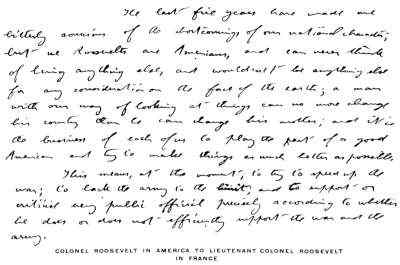 The last five years have made me
bitterly conscious of the shortcomings of our national character;
but we Roosevelts are Americans, and can never think
of being anything else, and wouldn't be anything else
for any consideration on the face of the earth; a man
with our way of looking at things can no more change
his country than he can change his mother; and it is
the business of each of us to play the part of a good
American and try to make things as much better as possible.
This means, at the moment, to try to speed up the
war; to back the army to the limit; and to support or
criticise every public official precisely according to whether
he does or does not efficiently support the war and the
army.
COLONEL ROOSEVELT IN AMERICA TO LIEUTENANT COLONEL ROOSEVELT
IN FRANCE